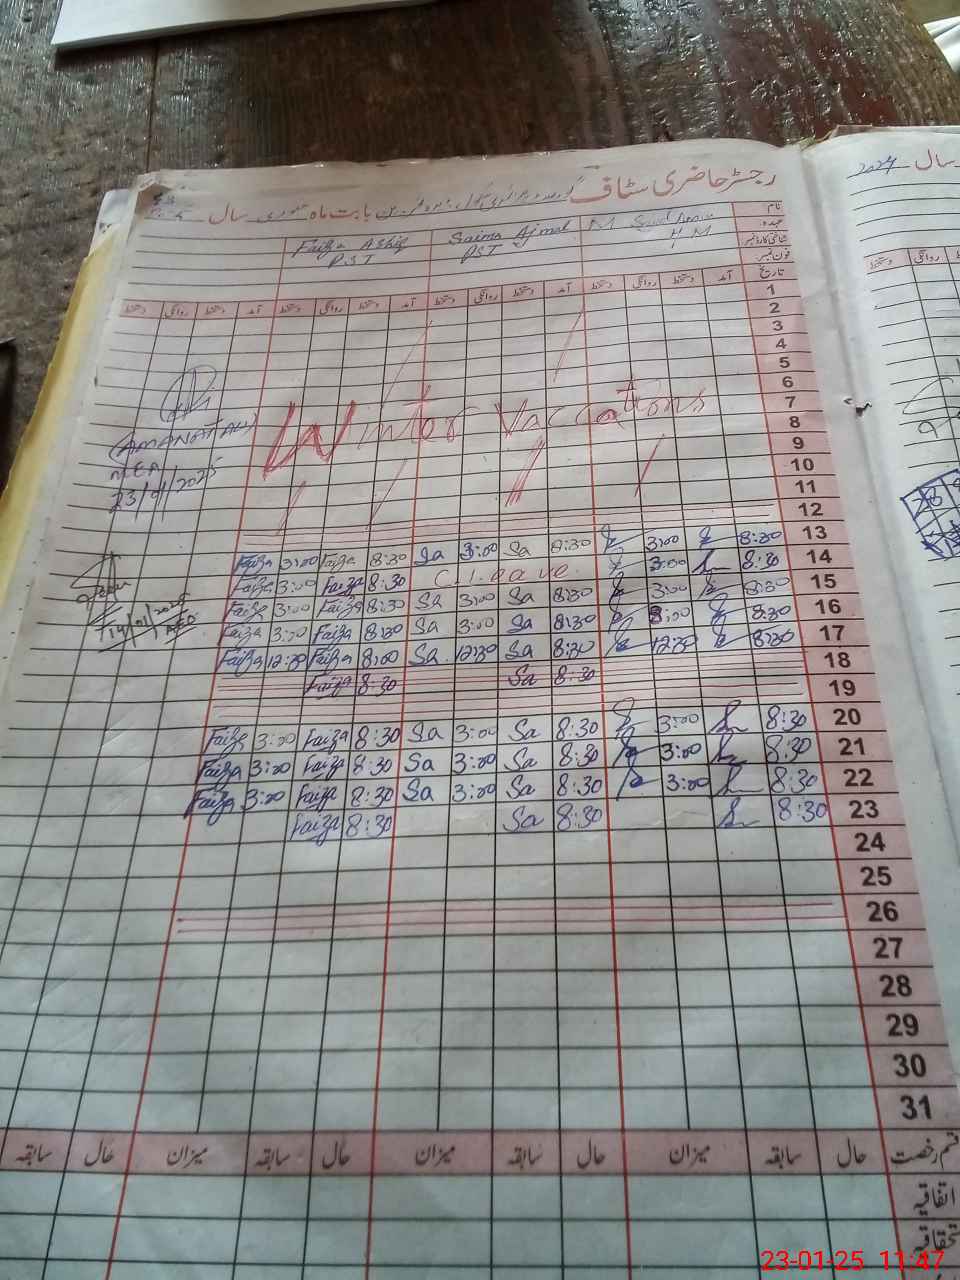 رجسٹر حاضری سٹاف
بابت ماہ جنوری سال
2024 سال
نام
عہدہ
شناختی کارڈ نمبر
فون نمبر
تاریخ
Faiza Ashiq Saima Ajmal M
PST PST H M
دستخط روانگی دستخط آمد دستخط روانگی دستخط آمد دستخط روانگی دستخط آمد دستخط روانگی دستخط آمد
1
2
3
4
5
6
Winter Vaccations 7
8
9
10
11
12
(AMANAT ALI)
MEA
23/01/2025
Faiza 3:00 Faiza 8:30 Sa 3:00 Sa 8:30 3:00 8:30 13
Faiza 3:00 Faiza 8:30 C.Leave 3:00 8:30 14
Faiza 3:00 Faiza 8:30 Sa 3:00 Sa 8:30 3:00 8:30 15
Faiza 3:00 Faiza 8:30 Sa 3:00 Sa 8:30 3:00 8:30 16
Faiza 12:30 Faiza 8:00 Sa 12:30 Sa 8:30 12:30 8:30 17
Faiza 8:30 Sa 8:30 18
19
14/01/2025
AEO
Faiza 3:00 Faiza 8:30 Sa 3:00 Sa 8:30 3:00 8:30 20
Faiza 3:00 Faiza 8:30 Sa 3:00 Sa 8:30 3:00 8:30 21
Faiza 3:00 Faiza 8:30 Sa 3:00 Sa 8:30 3:00 8:30 22
Faiza 8:30 Sa 8:30 8:30 23
24
25
26
27
28
29
30
31
قسم رخصت حال سابقہ میزان حال سابقہ میزان حال سابقہ میزان حال سابقہ
اتفاقیہ
استحقاقیہ
23-01-25 11:47